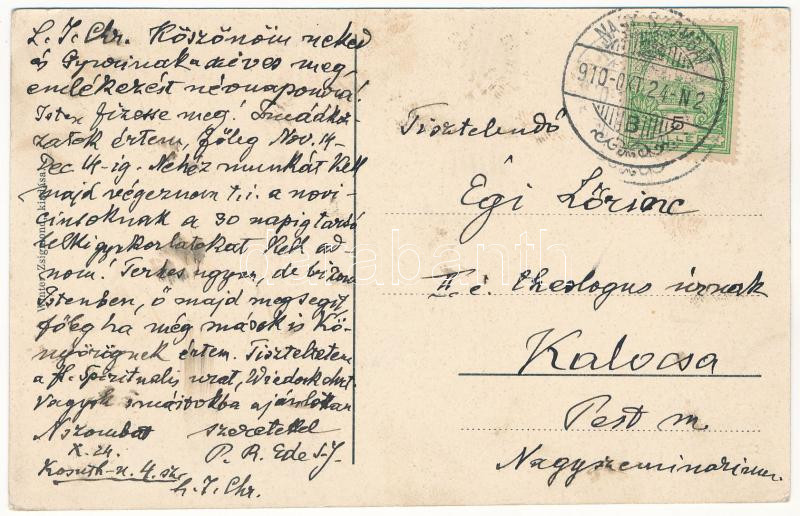 L. J. Chr. Köszönöm neked
és Gyurinak a szives meg,
emlékezést névnapomra!
Isten fizesse meg! Imádkoz
zatok értem, főleg Nov. 14-
Dec 14-ig. Nehéz munkát kell
majd végeznem t. i. a novi-
ciusoknak a 30 napig tartó
lelkigyakorlatokat kell ad-
nom! Terhes ugyan, de bízom
Istenben, ő majd megsegít,
főleg ha még mások is kö-
nyörögnek értem. Tiszteltetem
a P. Spirituális urat,
Vagyok imáitokba ajánlottan
N szombat szeretettel
X. 24. P. R. Ede S. J.
Kossuth-u. 4. sz.
L. J. Chr.
Winter Zsigmond kiadása
NAGYSZOMBAT
910-OKT 24-N2
B 5
Tisztelendő
Égi Lőrinc
II é. theologus úrnak
Kalocsa
Pest m.
Nagyszeminárium.
darabanth